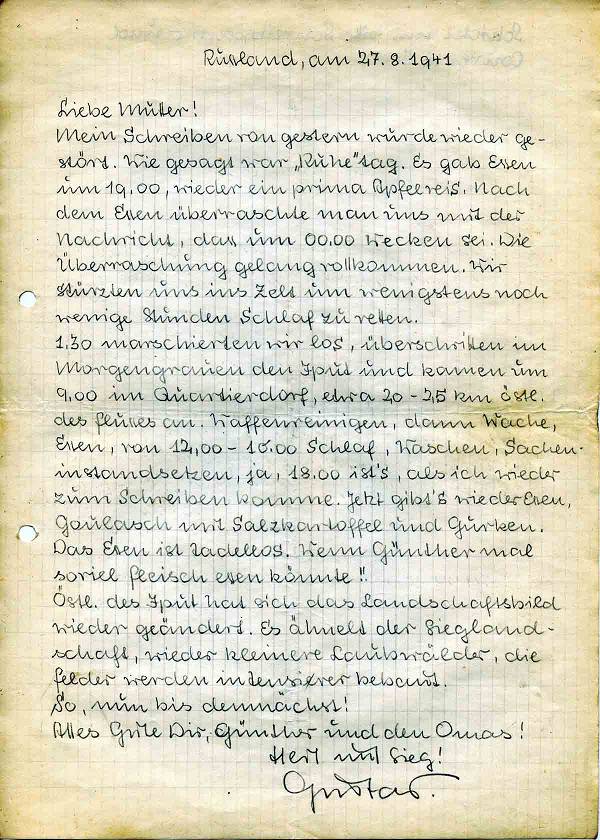 Rußland, am 27.8.1941
Liebe Mutter!
Mein Schreiben von gestern wurde wieder ge-
stört. Wie gesagt war „Ruhe“tag. Es gab Essen
um 19.00, wieder ein prima Apfelreis. Nach
dem Essen überraschte man uns mit der
Nachricht, dass um 00.00 Wecken sei. Die
Überraschung gelang vollkommen. Wir
stürzten uns ins Zelt um wenigstens noch
wenige Stunden Schlaf zu retten.
1.30 marschierten wir los, überschritten im
Morgengrauen den Iput und kamen um
9.00 im Quartierdorf, etwa 20 - 25 km östl.
des Flusses an. Waffenreinigen, dann Wache,
Essen, von 12,00 - 16.00 Schlaf, Waschen, Sachen-
instandsetzen, ja, 18.00 ist's, als ich wieder
zum Schreiben komme. Jetzt gibt's wieder Essen,
Goulasch mit Salzkartoffel und Gurken.
Das Essen ist tadellos. Wenn Günther mal
soviel Fleisch essen könnte!!
Östl. des Iput hat sich das Landschaftsbild
wieder geändert. Es ähnelt der Siegland-
schaft, wieder kleinere Laubwälder, die
Felder werden intensiver bebaut.
So, nun bis demnächst!
Alles Gute Dir, Günther und den Omas!
Heil und Sieg!
Gustav.